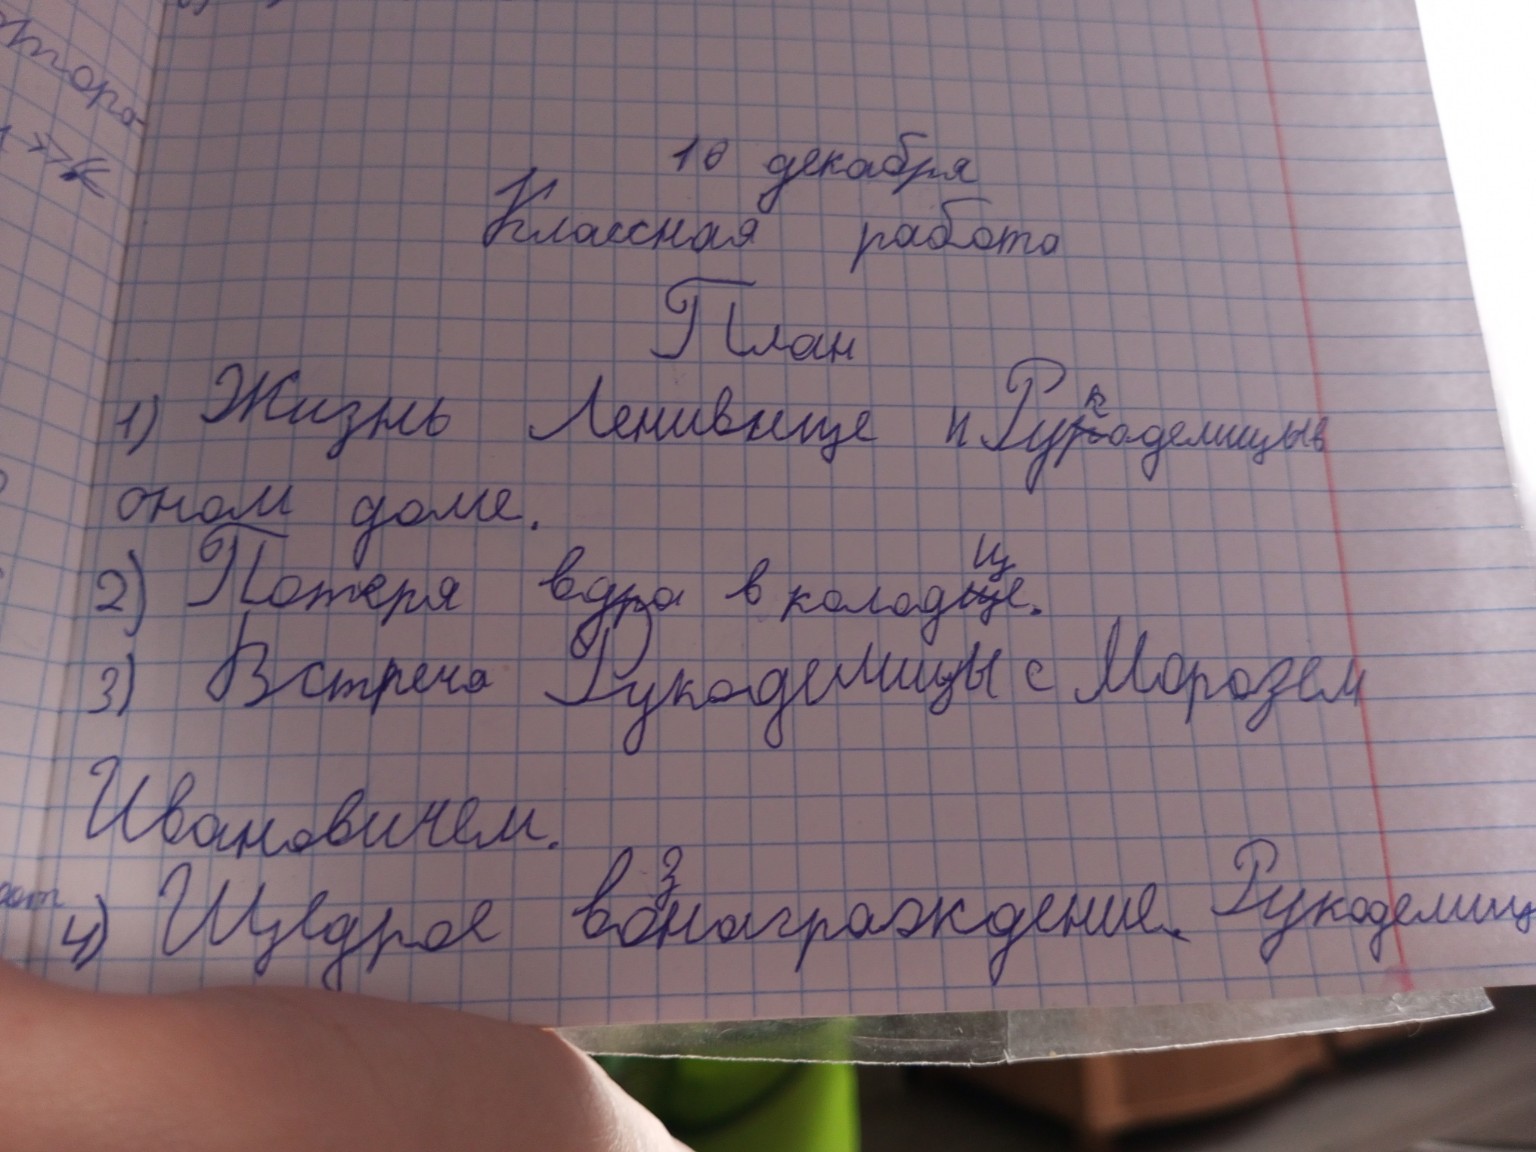 16 декабря
Классная работа
План
1) Жизнь Ленивице и Рукоделицы в
оном доме.
2) Потеря ведра в колодце.
3) Встреча Рукоделицы с Морозем
Ивановичем.
4) Щедрое вознаграждение. Рукоделиц